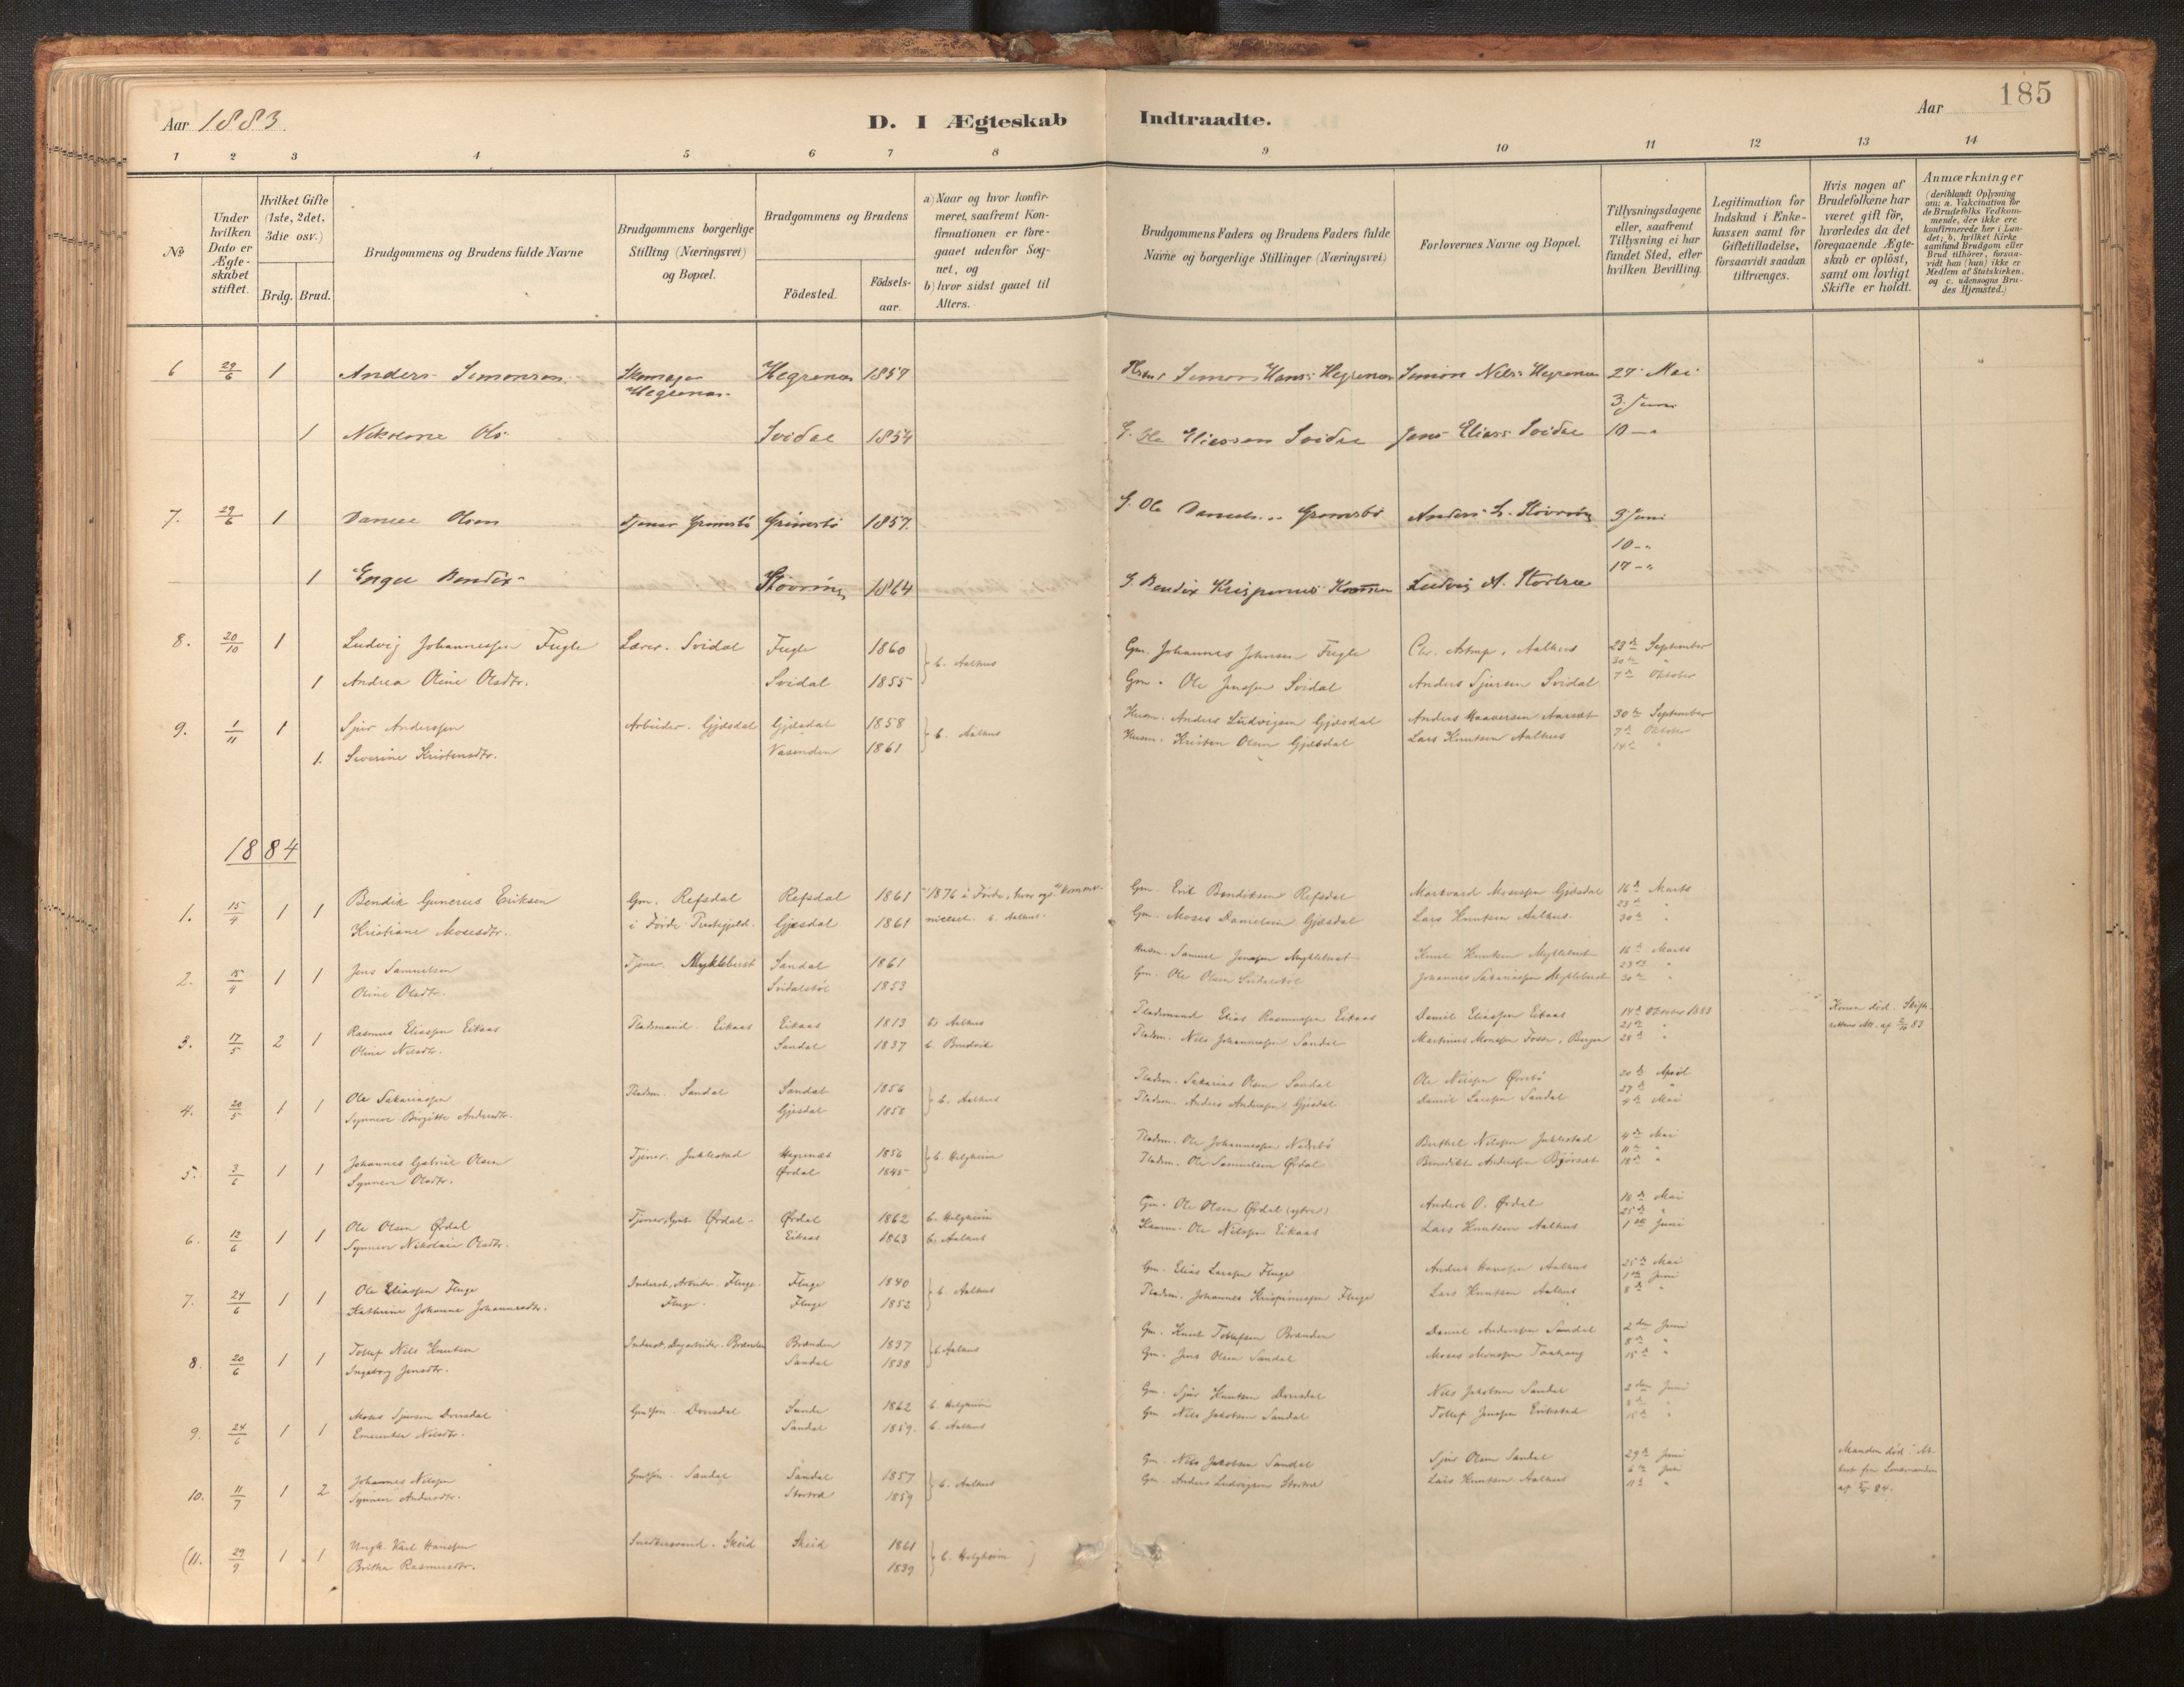 185
Aar 1883.
D. I Ægteskab Indtraadte.
Aar
1 2 3 4 5 6 7 8 9 10 11 12 13 14
№
Under hvilken Dato er Ægteskabet stiftet.
Hvilket Gifte (1ste, 2det. 3die osv.)
Brdg. Brud.
Brudgommens og Brudens fulde Navne
Brudgommens borgerlige Stilling (Næringsvei) og Bopæl.
Brudgommens og Brudens
Fødested.
Fødselsaar.
a) Naar og hvor konfirmeret, saafremt Konfirmationen er foregaaet udenfor Sognet, og
b) hvor sidst gaaet til Alters.
Brudgommens Faders og Brudens Faders fulde Navne og borgerlige Stillinger (Næringsvei)
Forlovernes Navne og Bopæl.
Tillysningsdagene eller, saafremt Tillysning ei har fundet Sted, efter hvilken Bevilling.
Legitimation for Indskud i Enkekassen samt for Giftetilladelse, forsaavidt saadan tiltrænges.
Hvis nogen af Brudefolkene har været gift før, hvorledes da det foregaaende Ægteskab er opløst, samt om lovligt Skifte er holdt.
Anmærkninger (deriblandt Oplysning om: a. Vakcination for de Brudefolks Vedkommende, der ikke ere konfirmerede her i Landet; b. hvilket Kirkesamfund Brudgom eller Brud tilhører, forsaavidt han (hun) ikke er Medlem af Statskirken, og c. udensogns Brudes Hjemsted.)
6 29/6 1 Anders Simonsen Skomager Hegrenæs 1857 Simon Hans: Hegrenæs Simon Nils: Hegrenæs 27 Mai
Hegrenæs 3. Juni
1 Nikoline Ols: Svidal 1854 G. Ole Eliessen Svidal Jens Elias: Svidal 10 - "
7. 29/6 1 Daniel Olsen Tjener Grimsbø Grimsbø 1857. G. Ole Daniels: Grimsbø Anders L. Støvring 3 Juni
10 - "
1 Engel Bendix: Støvring 1864 G. Bendix Krispinus: Ludvig A. Stortræ 17 - "
8. 20/10 1 Ludvig Johannessen Fugle Lærer. Svidal Fugle 1860 b. Aalhus Gm. Johannes Johnsen Fugle Chr. Astrup, Aalhus 23de September
30te "
1 Andrea Oline Olsdtr. Svidal 1855 Gm. Ole Jenssen Svidal Anders Sjursen Svidal 7de Oktober
9. 1/11 1 Sjur Anderssen Arbeider. Gjesdal Gjesdal 1858 b. Aalhus Husm. Anders Ludvigsen Gjesdal Anders 30te September
1. Severine Kristensdtr. Vasenden 1861 Husm. Kristen Olsen Gjesdal Lars Knutsen Aalhus 7de Oktober
14de "
1884
1. 15/4 1 1 Bendik Gunerus Eriksen Gm. Refsdal Refsdal 1861 1876 i Førde, hvor og Gm. Erik Bendiksen Refsdal Markvard Mosessen Gjesdal 16de Marts
23de "
Kristiane Mosesdtr. i Førde Prestegjeld. Gjesdal 1861 b. Aalhus. Gm. Moses Danielsen Gjesdal Lars Knutsen Aalhus. 30te "
2. 15/4 1 1 Jens Samuelsen Tjener. Myklebust Sandal 1861 Husm. Samuel Jenssen Myklebust Knut Knutsen Myklebust 16de Marts
23de "
Oline Olsdtr. Svidalstøl 1853 Gm. Ole Olsen Svidalstøl Johannes Sakariassen Myklebust 30te "
3. 17/5 2 1 Rasmus Eliassen Eikaas Pladsmand. Eikaas Eikaas 1813 b. Aalhus Pladsmand Elias Rasmussen Eikaas Daniel Eliassen Eikaas 14de Oktober 1883 Konen død. Skifte
21de "
Oline Nilsdtr. Sandal 1837 b. Bredvik Pladsm. Nils Johannessen Sandal Martinus Monssen Fosse, Bergen 28de "
4. 20/5 1 1 Ole Sakariassen Pladsm. Sandal Sandal 1856 b. Aalhus Pladsm. Sakarias Olsen Sandal Ole Nilssen Øvrebø 20de April
27de "
Synneve Birgitte Andersdtr. Gjesdal 1858 Pladsm. Anders Anderssen Gjesdal Daniel Larssen Sandal 4de Mai
5. 3/6 1 1 Johannes Gabriel Olsen Tjener. Juklestad Hegrenæs 1856 b. Helgheim Pladsm. Ole Johannessen Nedrebø Berthel Nilssen Juklestad 4de Mai
11te "
Synneve Olsdtr. Ørdal 1845 Pladsm. Ole Samuelsen Ørdal Benedikt Anderssen 18de "
6. 12/6 1 1 Ole Olsen Ørdal Ørdal. Ørdal 1862 b. Helgheim Gm. Ole Olsen Ørdal (ytre) Anders O. Ørdal 18de Mai
25de "
Synneve Nikolaie Olsdtr. Eikaas 1863 b. Aalhus Ole Nilssen Eikaas Lars Knutsen Aalhus 1ste Juni
7. 24/6 1 1 Ole Eliassen Fluge Inderst, Arbeider. Fluge. Fluge 1840 b. Aalhus Gm. Elias Larssen Fluge Anders Hanssen Aalhus 25de Mai
1ste Juni
Kathrine Johanne Johannesdtr. Fluge. Fluge 1852 Pladsm. Johannes Krispinussen Fluge Lars Knutsen Aalhus 8de "
8. 20/6 1 1 Tollef Nils Knutsen Inderst, Dagarbeider. Brænden Brænden 1837 b. Aalhus Gm. Knut Tollefsen Brænden Daniel Anderssen Sandal 2den Juni
8de "
Ingeborg Jensdtr. Sandal 1838 Gm. Jens Olsen Sandal Moses Monssen 15de "
9. 24/6 1 1 Moses Sjursen Dvergsdal 1862 b. Helgheim Gm. Sjur Knutsen Nils Jakobsen Sandal 2den Juni
8de "
Emerentse Nilsdtr. Sandal 1859. b. Aalhus Gm. Nils Jakobsen Sandal Tollef Jenssen Eikestad 15de "
10. 11/7 1 2 Johannes Nilssen Gmssøn. Sandal Sandal 1857 b. Aalhus Gm. Nils Jakobsen Sandal Sjur Olsen Sandal 29de Juni Manden død. At-
6te Juli test fra Lensmanden
Synneve Andersdtr. Stortræ 1859 Gm. Anders Ludvigsen Stortræ Lars Knutsen Aalhus 11te "
(11. 29/9 1 1 Ungk. Karl Hanssen Skeid Skeid 1861 b. Helgheim )
Britha Rasmusdtr. 1839